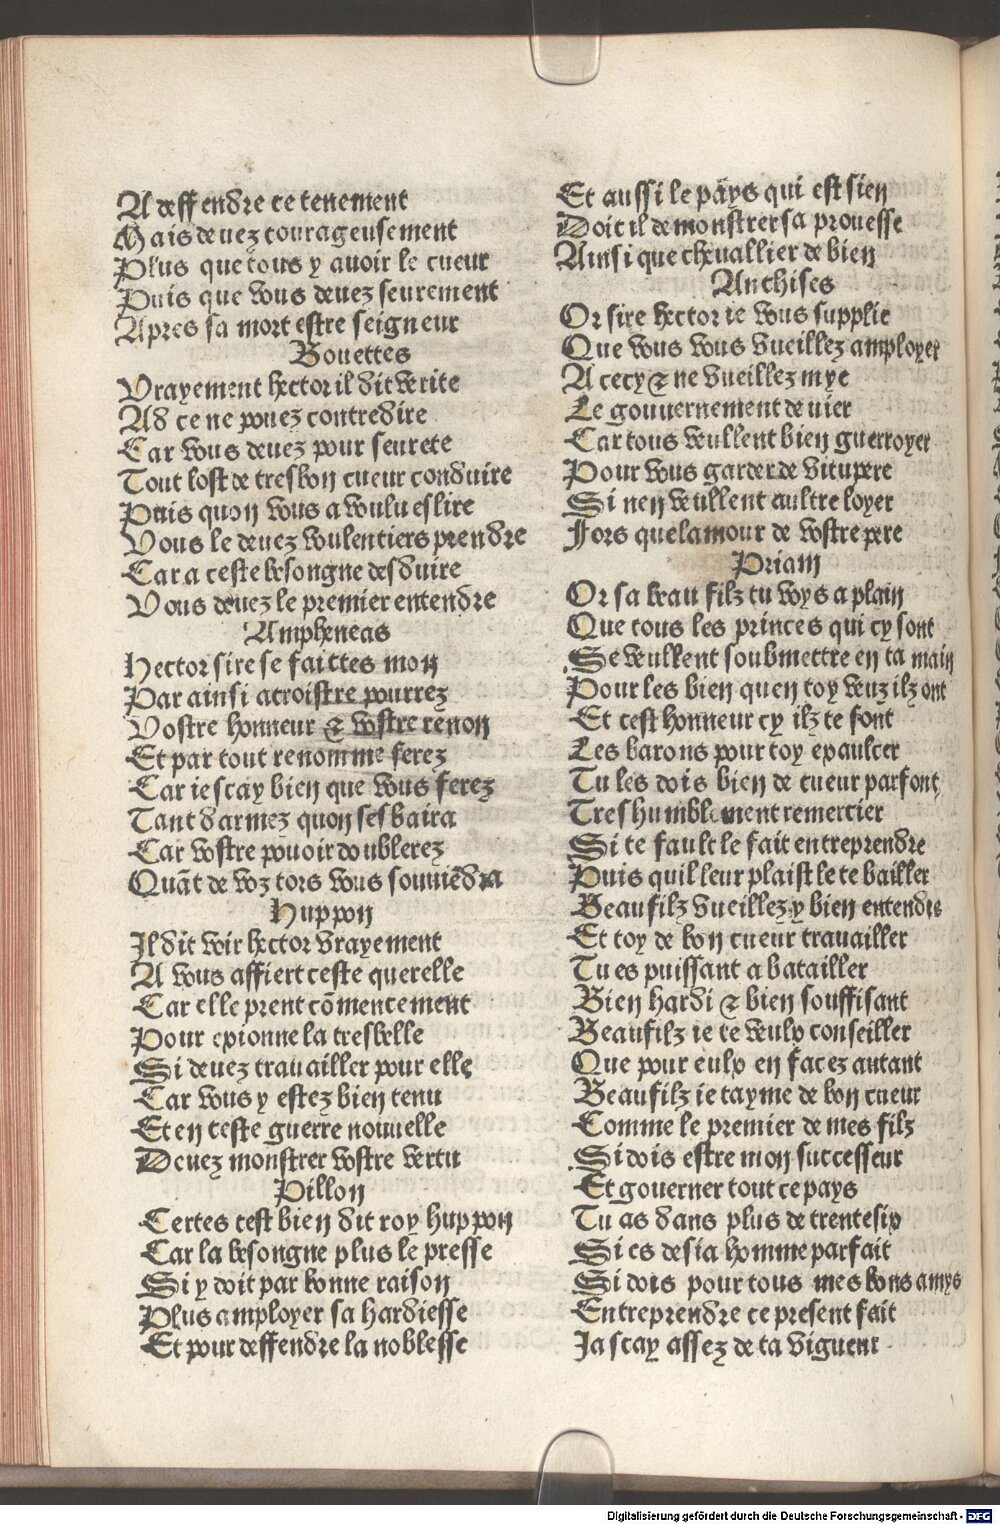 A deffendre ce tenement
Mais deuez courageusement
Plus que tous y auoir le cueur
Puis que vous deuez seurement
Apres sa mort estre seigneur
Bouettes
Vrayement hector il dit verite
Ad ce ne pouez contredire
Car vous deuez pour seurete
Tout lost de tresbon cueur conduire
Puis quon vous a voulu eslire
Vous le deuez voulentiers prendre
Car a ceste besongne desduire
Vous deuez le premier entendre
Ampheneas
Hector sire se faittes mon
Par ainsi acroistre pourrez
Vostre honneur & vostre renon
Et par tout renomme serez
Car ie scay bien que vous ferez
Tant darmez quon sesbaira
Car vostre pouoir doublerez
Quāt de voz tors vous souuiēdra
Huppon
Il dit voir hector vrayement
A vous affiert ceste querelle
Car elle prent cōmencement
Pour epionne la tresbelle
Si deuez trauailler pour elle
Car vous y estez bien tenu
Et en ceste guerre nouuelle
Deuez monstrer vostre vertu
Pillon
Certes cest bien dit roy huppon
Car la besongne plus le presse
Si y doit par bonne raison
Plus amployer sa hardiesse
Et pour deffendre la noblesse
Et aussi le pays qui est sien
Doit il demonstrer sa prouesse
Ainsi que cheuallier de bien
Anthises
Or sire hector ie vous supplie
Que vous vous vueillez amployer
A cecy & ne vueillez mye
Le gouuernement deuier
Car tous veullent bien guerroyer
Pour vous garder de vitupere
Si nen veullent aultre loyer
Fors que lamour de vostre pere
Priam
Or sa beau filz tu voys a plain
Que tous les princes qui cy sont
Se veullent soubmettre en ta main
Pour les bien quen toy veuz ilz ont
Et cest honneur cy ilz te font
Les barons pour toy epaulcer
Tu les dois bien de cueur parfont
Tres humblement remercier
Si te fault le fait entreprendre
Puis quil leur plaist le te bailler
Beau filz vueillez y bien entendre
Et toy de bon cueur trauailler
Tu es puissant a batailler
Bien hardi & bien souffisant
Beau filz ie te veulx conseiller
Que pour eulx en facez autant
Beau filz ie tayme de bon cueur
Comme le premier de mes filz
Si dois estre mon successeur
Et gouerner tout ce pays
Tu as dans plus de trentesix
Si es desia homme parfait
Si dois pour tous mes bons amys
Entreprendre ce present fait
Ja scay assez de ta vigueur
Digitalisierung gefördert durch die Deutsche Forschungsgemeinschaft - DFG